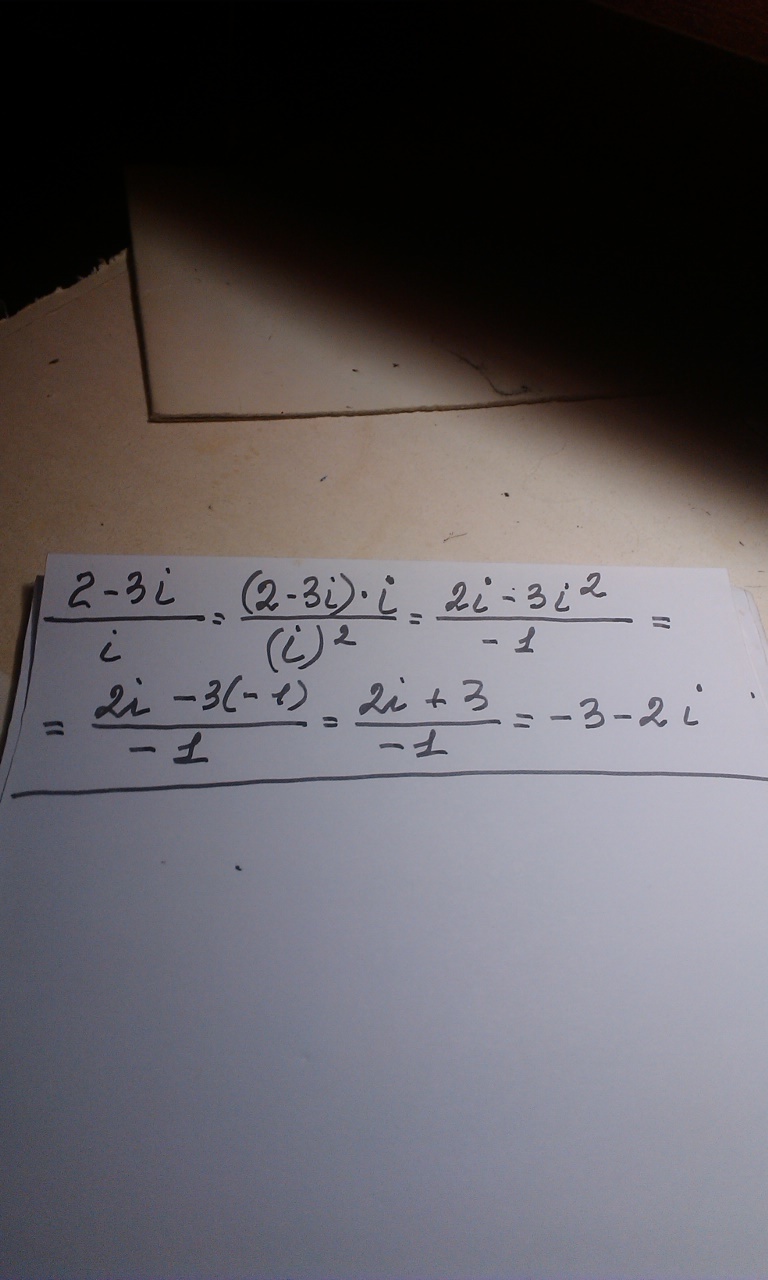 (2-3i)/i = ((2-3i)·i)/(i)² = (2i-3i²)/-1 =
= (2i-3(-1))/-1 = (2i+3)/-1 = -3-2i